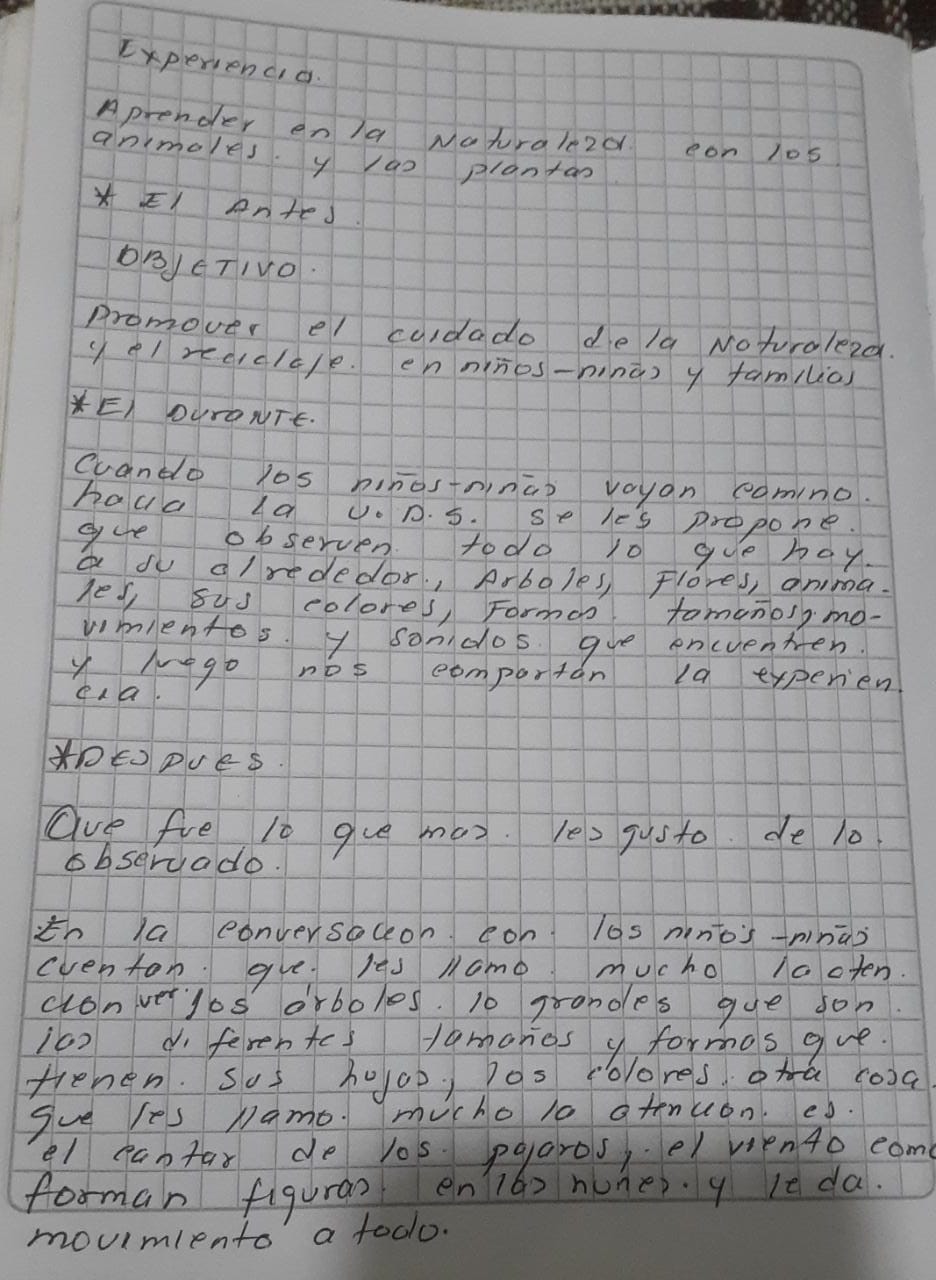 Experiencia.
Aprender en la Naturaleza. con los
animales. y las plantas
* El Antes.
OBJETIVO.
Promover el cuidado de la Naturaleza.
y el reciclaje. en niños-niñas y familias
* El DURANTE.
Cuando los niños-niñas vayan camino.
hacia la U.D.S. se les propone.
que observen todo lo que hay.
a su alrededor., Arboles, Flores, anima-
les, sus colores, Formas tamaños, mo-
vimientos. y sonidos. que encuentren.
y luego nos compartan la experien
cia.
*DESPUES.
Que fue lo que mas. les gusto. de lo.
observado.
En la conversacion. con. los niños-niñas
cuentan. que. les llamo. mucho la aten.
cion ver los árboles. lo grandes que son.
los diferentes tamaños y formas que.
tienen. sus hojas, los colores. otra cosa
que les llamo. mucho la atencion. es.
el cantar de los. pajaros,. el viento como
forman figuras. en las nubes. y le da.
movimiento a todo.